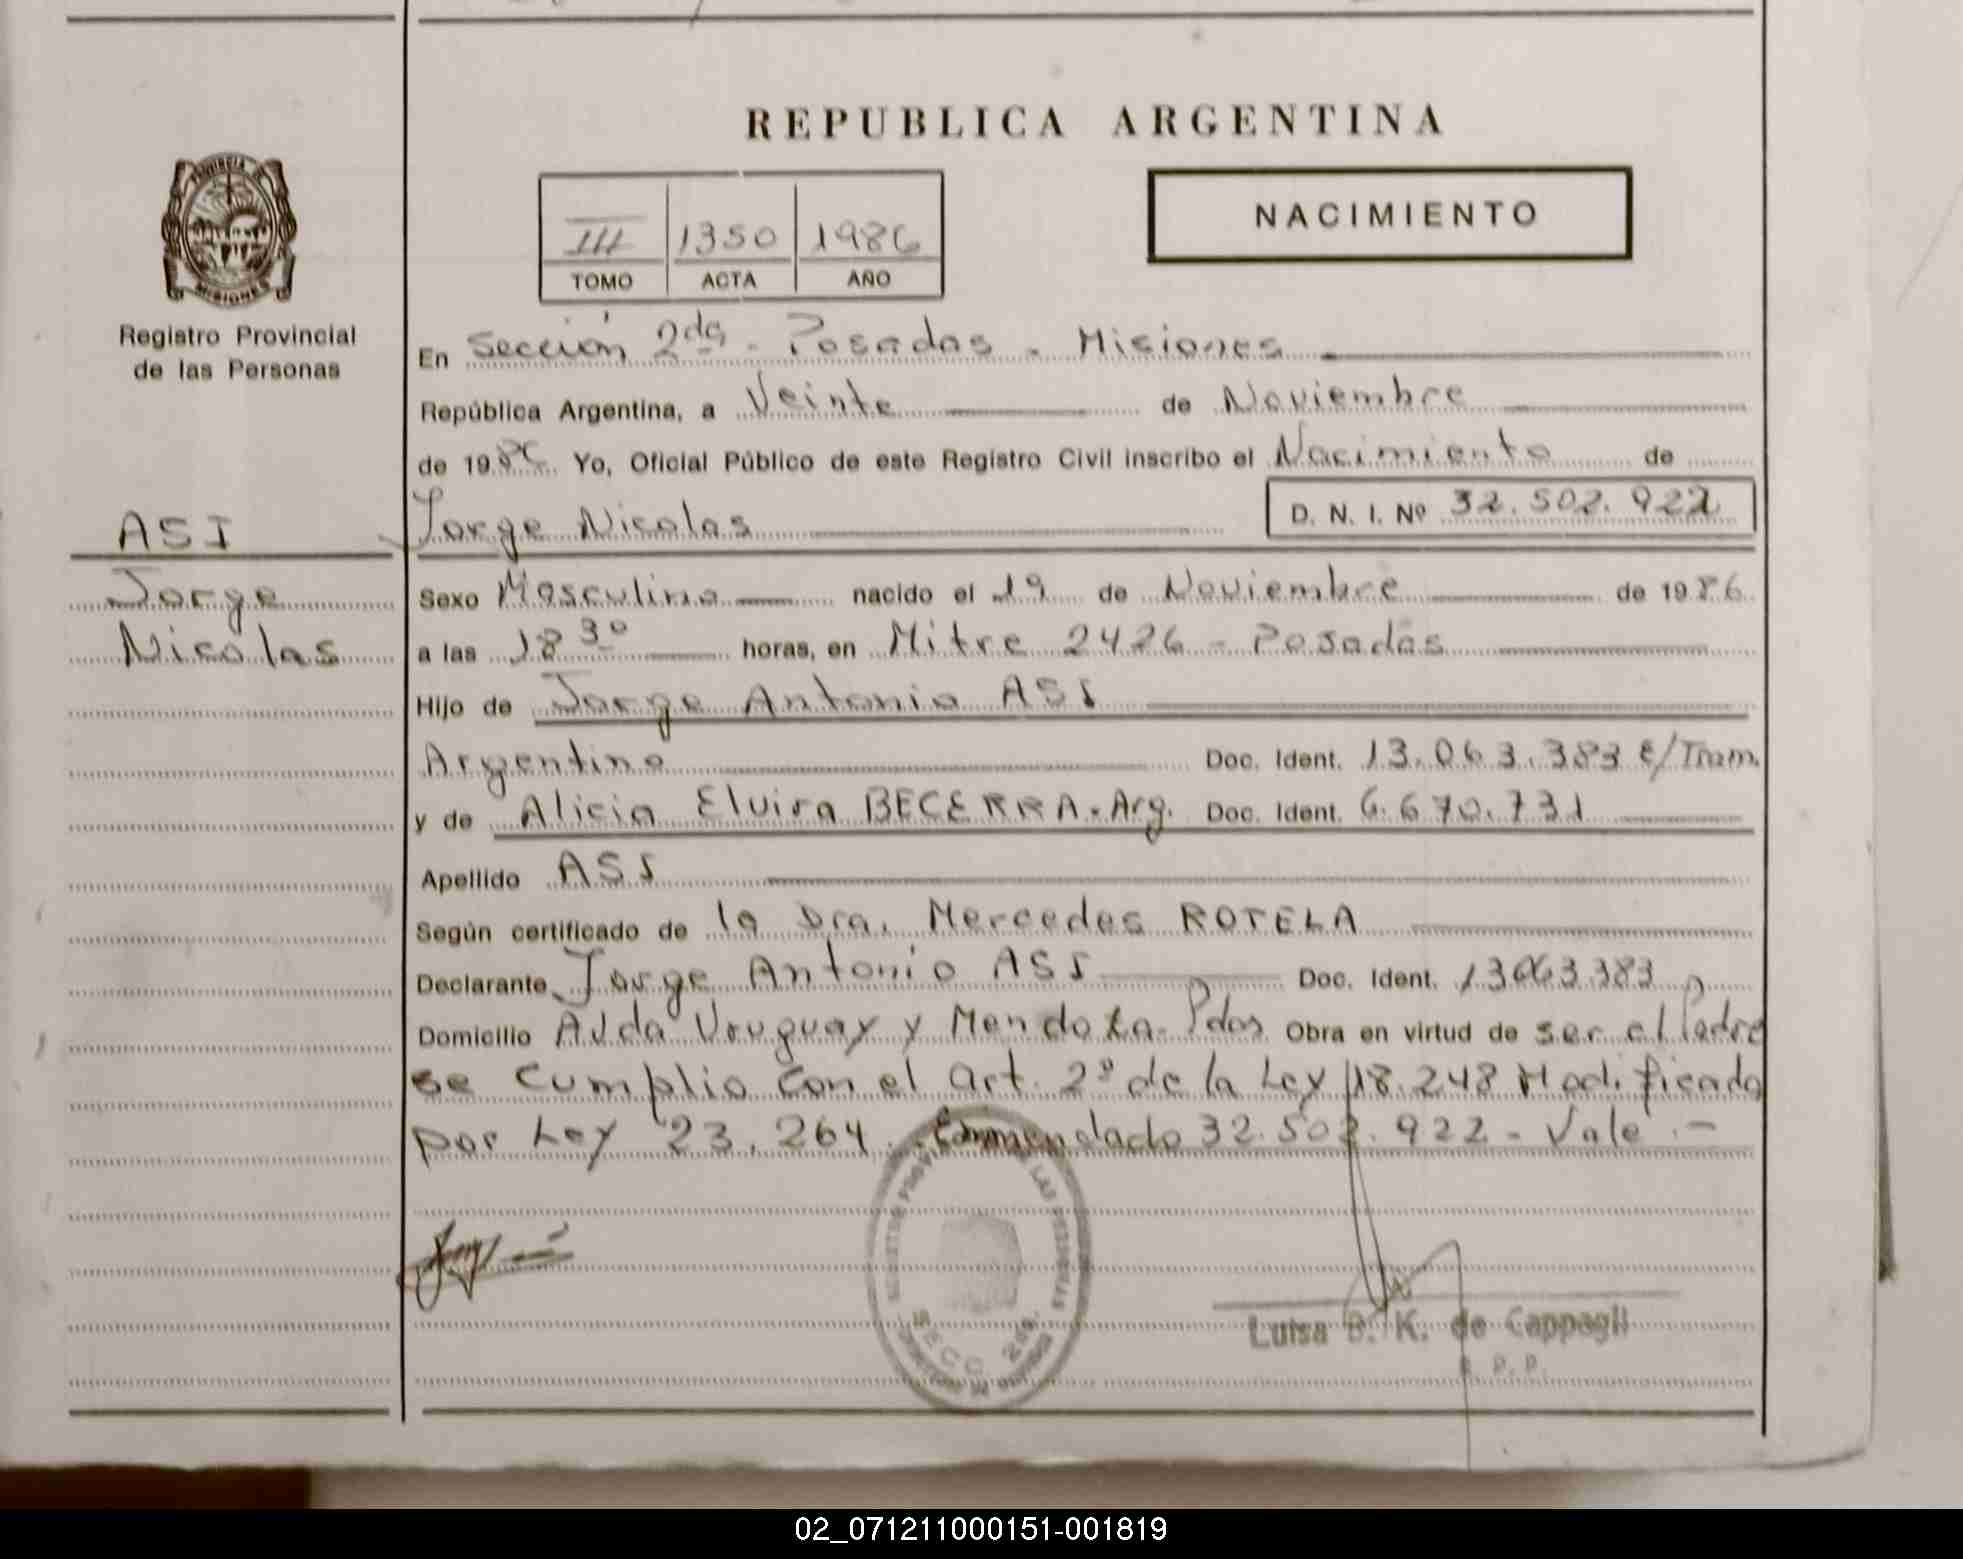 REPUBLICA ARGENTINA
PROVINCIA DE
MISIONES
Registro Provincial
de las Personas
III 1350 1986
TOMO ACTA AÑO
NACIMIENTO
En Sección 2da - Posadas - Misiones
República Argentina, a Veinte de Noviembre
de 1986 Yo, Oficial Público de este Registro Civil inscribo el Nacimiento de
Jorge Nicolas D. N. I. Nº 32.502.922
ASI
Jorge
Nicolas
Sexo Masculino nacido el 19 de Noviembre de 1986
a las 18 30 horas, en Mitre 2426 - Posadas
Hijo de Jorge Antonio ASI
Argentino Doc. Ident. 13.063.383 E/Tram.
y de Alicia Elvira BECERRA - Arg. Doc. Ident. 6.670.731
Apellido ASI
Según certificado de la Dra. Mercedes ROTELA
Declarante Jorge Antonio ASI Doc. Ident. 13063383
Domicilio Avda Uruguay y Mendoza - Pdas Obra en virtud de ser el Padre
se cumplio con el art. 2º de la Ley 18.248 Modificado
por Ley 23.264. Enmendado 32.502.922 - Vale.-
SECC. 2da.
Luisa B. K. de Cappagli
02_071211000151-001819